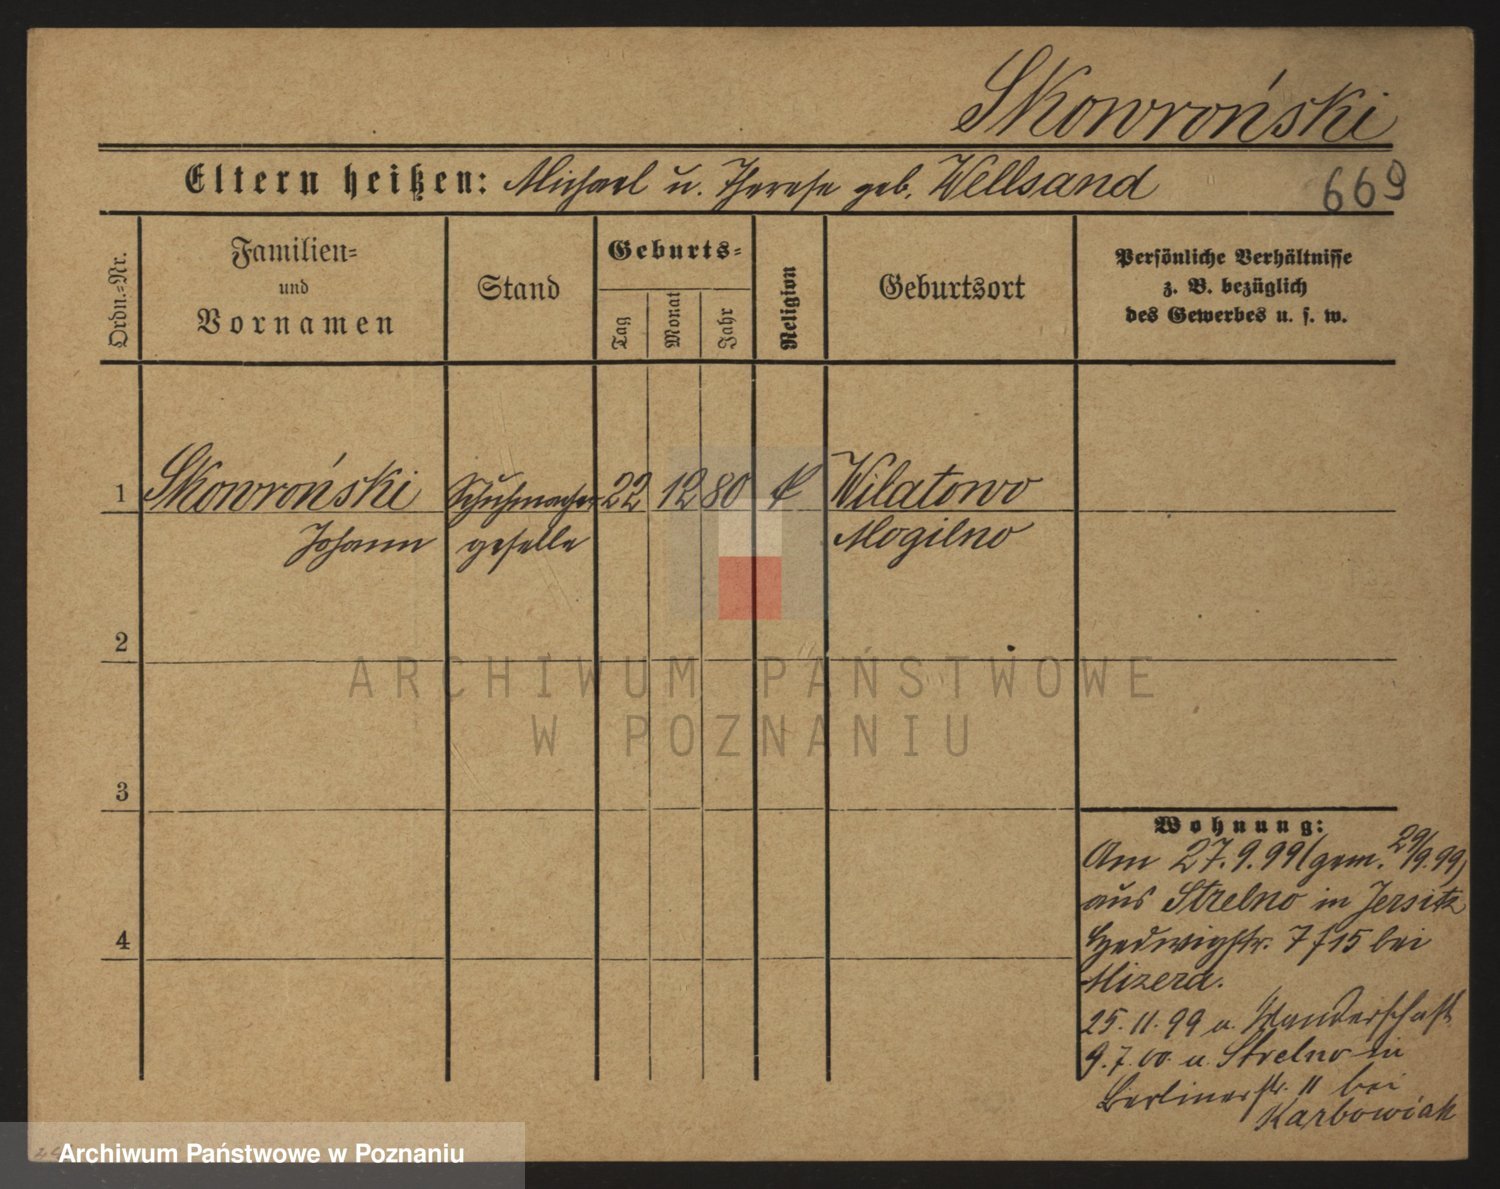 Skowroński
Eltern heißen: Michael u. Therese geb. Wellsand
669
Ordn.-Nr.
Familien-
und
Vornamen
Stand
Geburts-
Tag
Monat
Jahr
Religion
Geburtsort
Persönliche Verhältnisse
z. B. bezüglich
des Gewerbes u. s. w.
1 Skowroński Schuhmacher 22 12 80 k Wilatowo
Johann geselle Mogilno
2
3
4
Wohnung:
Am 27.9.99 (gem. 29/9.99)
aus Strelno in Jersitz
Hedwigstr. 7 f 15 bei
Mizera.
25.11.99 a. Wanderschaft
9.7.00. a. Strelno in
Berlinerstr. 11 bei
Karbowiak
ARCHIWUM PAŃSTWOWE
W POZNANIU
Archiwum Państwowe w Poznaniu